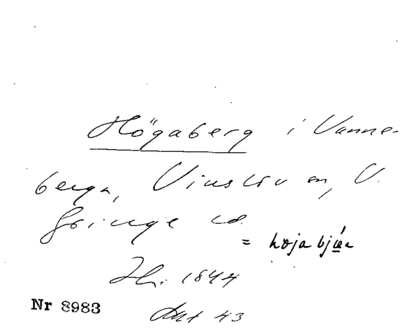 Högaberg i Vanne-
berga, Vinslöv sn, V.
Göinge hd.
= højabjär
Hi. 1844
Nr 8983
43